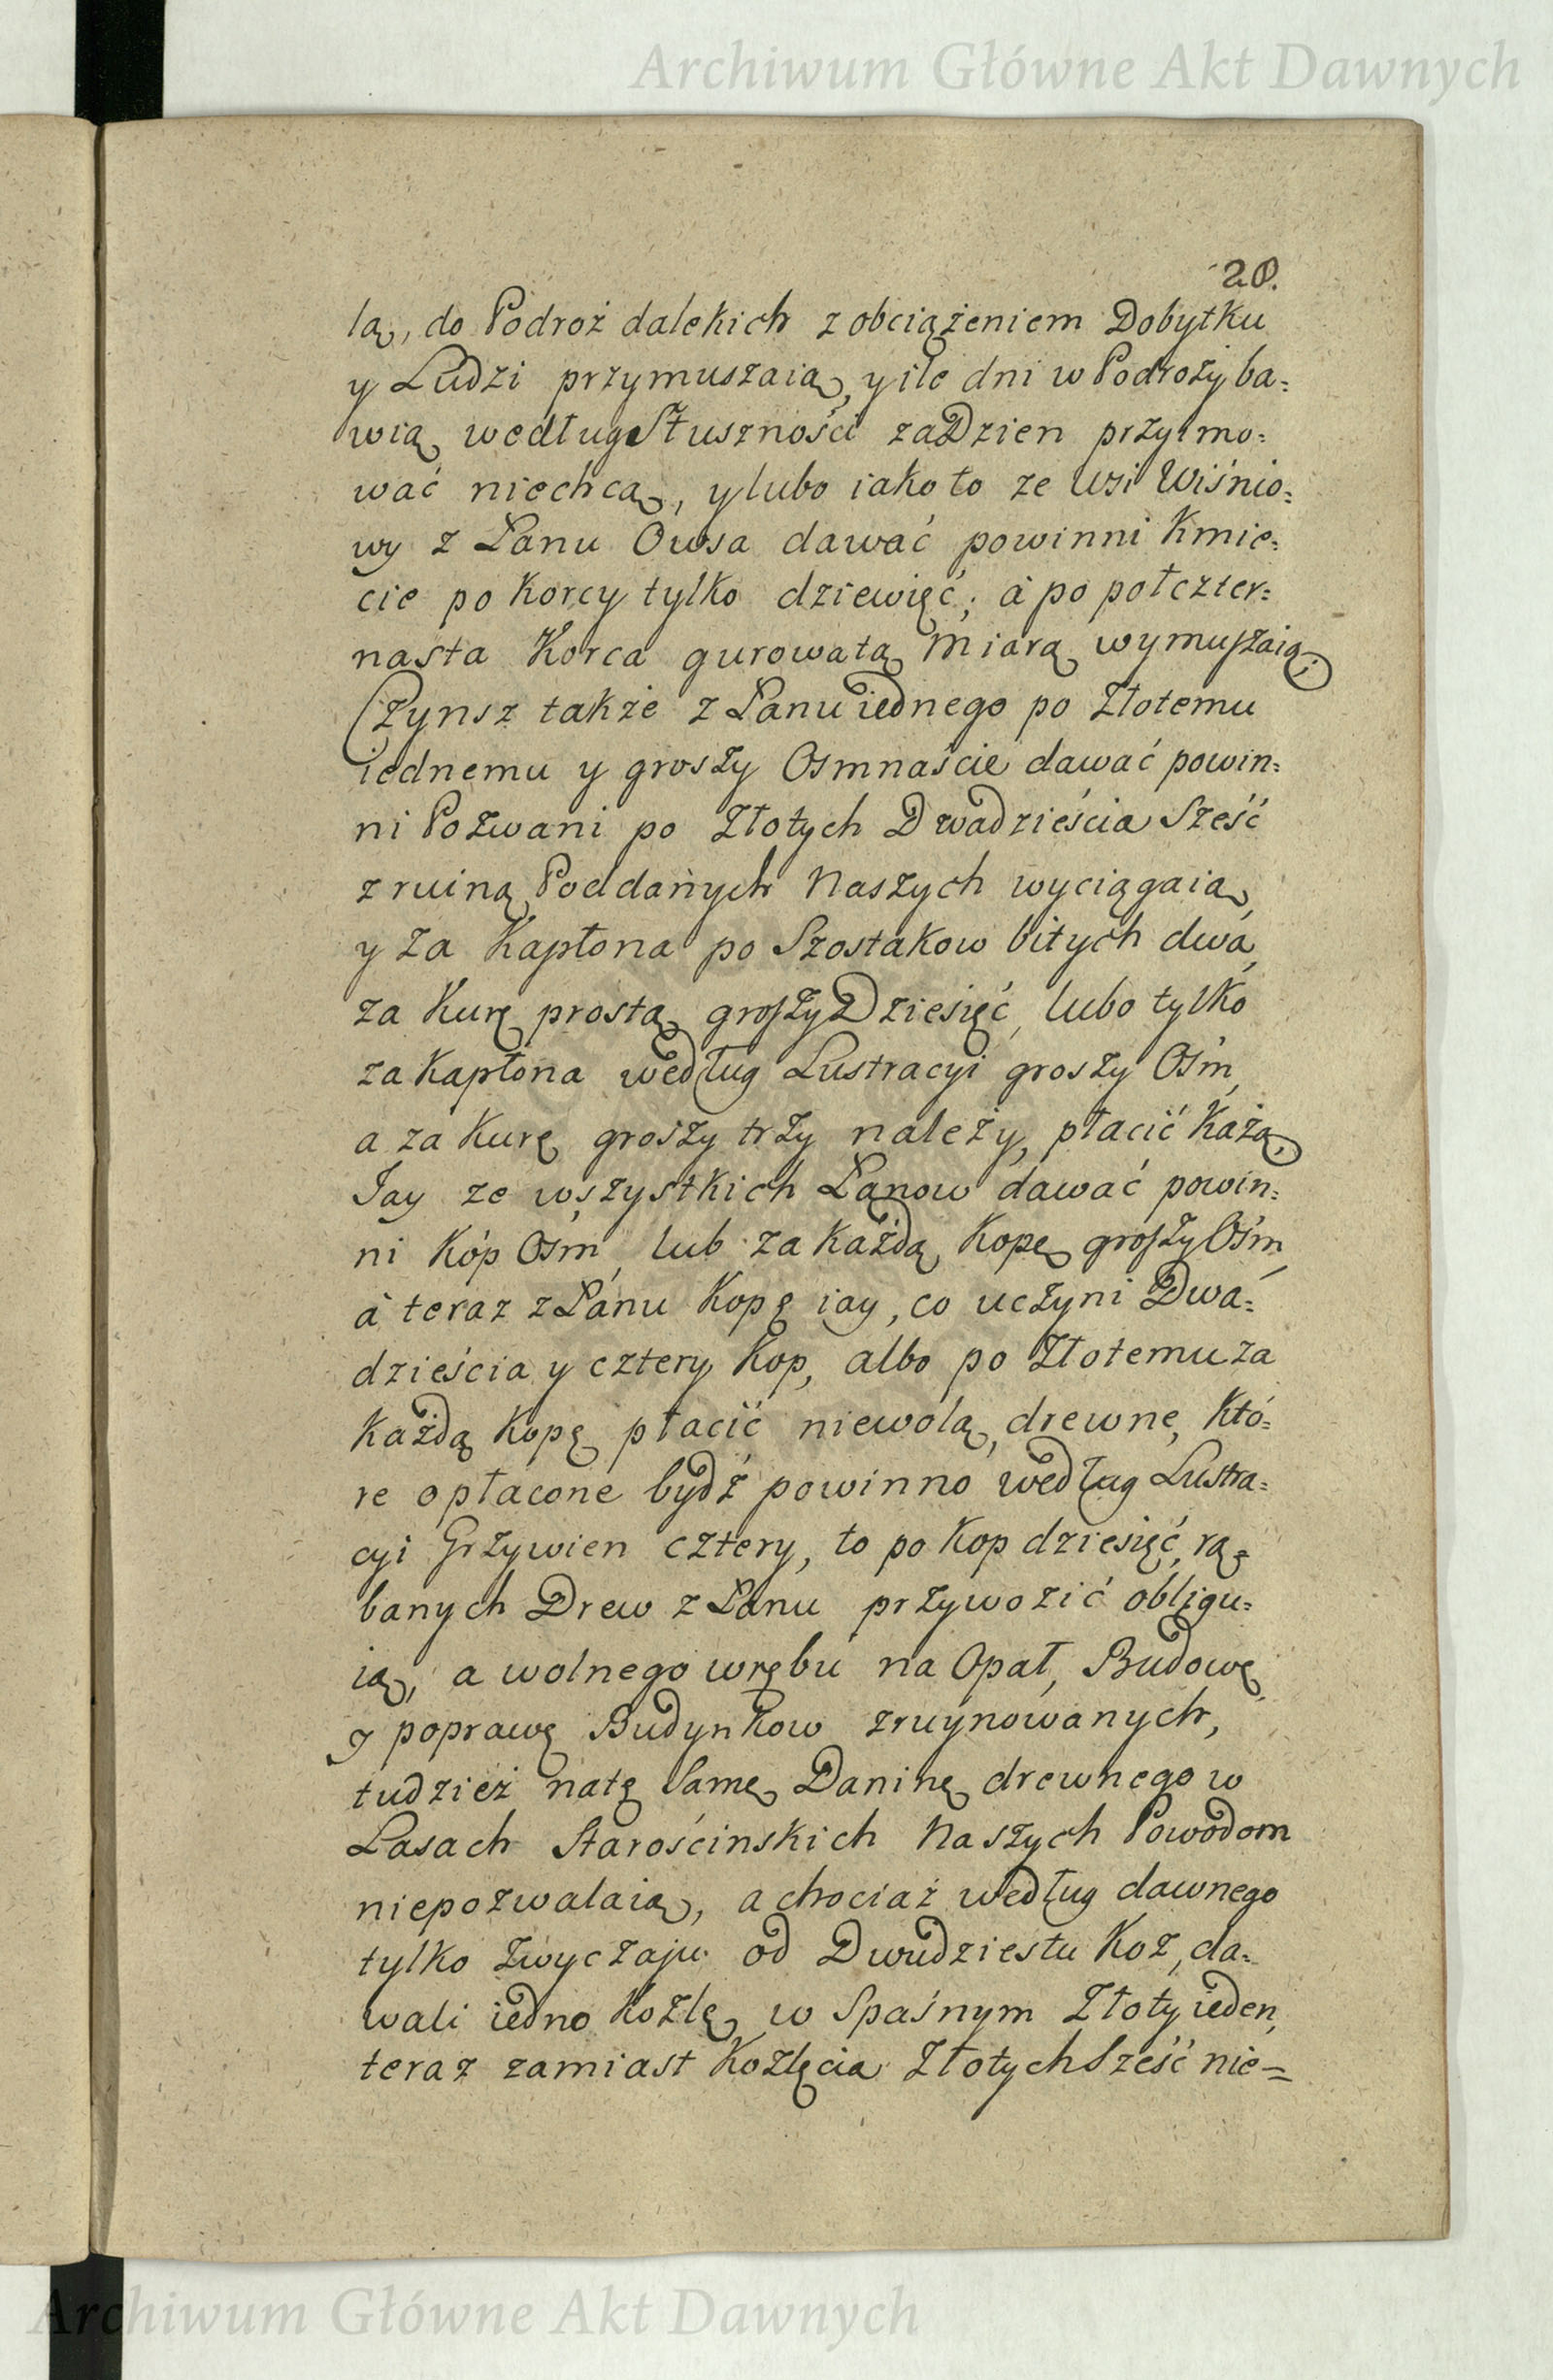 Archiwum Główne Akt Dawnych
20.
lą, do Podroż dalekich z obciążeniem Dobytku
y Ludzi przymuszaią, y ile dni w Podroży ba=
wią według Słuszności za Dzien przyimo=
wać niechcą, y lubo iako to ze Wsi Wiśnio=
wy z Łanu Owsa dawać powinni Kmie=
cie po Korcy tylko dziewięć, á po połczter=
nasta Korca gurowatą Miarą wymuszaią;
Czynsz także z Łanu iednego po Złotemu
iednemu y groszy Osmnaście dawać powin=
ni Pozwani po Złotych Dwadzieścia Sześć
z ruiną Poddanych Naszych wyciągaią,
y za Kapłona po Szostakow bitych dwa,
za Kurę prostą groszy Dziesięć, lubo tylko
za Kapłona według Lustracyi groszy Ośm,
a za Kurę groszy trzy należy, płacić Każą,
Jay ze wszystkich Łanow dawać powin=
ni Kóp Ośm, lub za każdą Kopę groszy Ośm,
á teraz z Łanu Kopę iay, co uczyni Dwa=
dzieścia y cztery Kop, albo po Złotemu za
Każdą Kopę płacić niewolą, drewne, Któ=
re opłacone bydź powinno według Lustra=
cyi Grzywien cztery, to po Kop dziesięć, rą=
banych Drew z Łanu przywozić obligu=
ią, a wolnego wrębu na Opał, Budowę
y poprawę Budynkow zruynowanych,
tudzież natę Samę Daninę drewnego w
Lasach Starościnskich Naszych Powodom
niepozwalaią, a chociaż według dawnego
tylko Zwyczaju od Dwudziestu Koz, da=
wali iedno Koźlę, w Spaśnym Złoty ieden,
teraz zamiast Koźlęcia Złotych Sześć nie=
Archiwum Główne Akt Dawnych